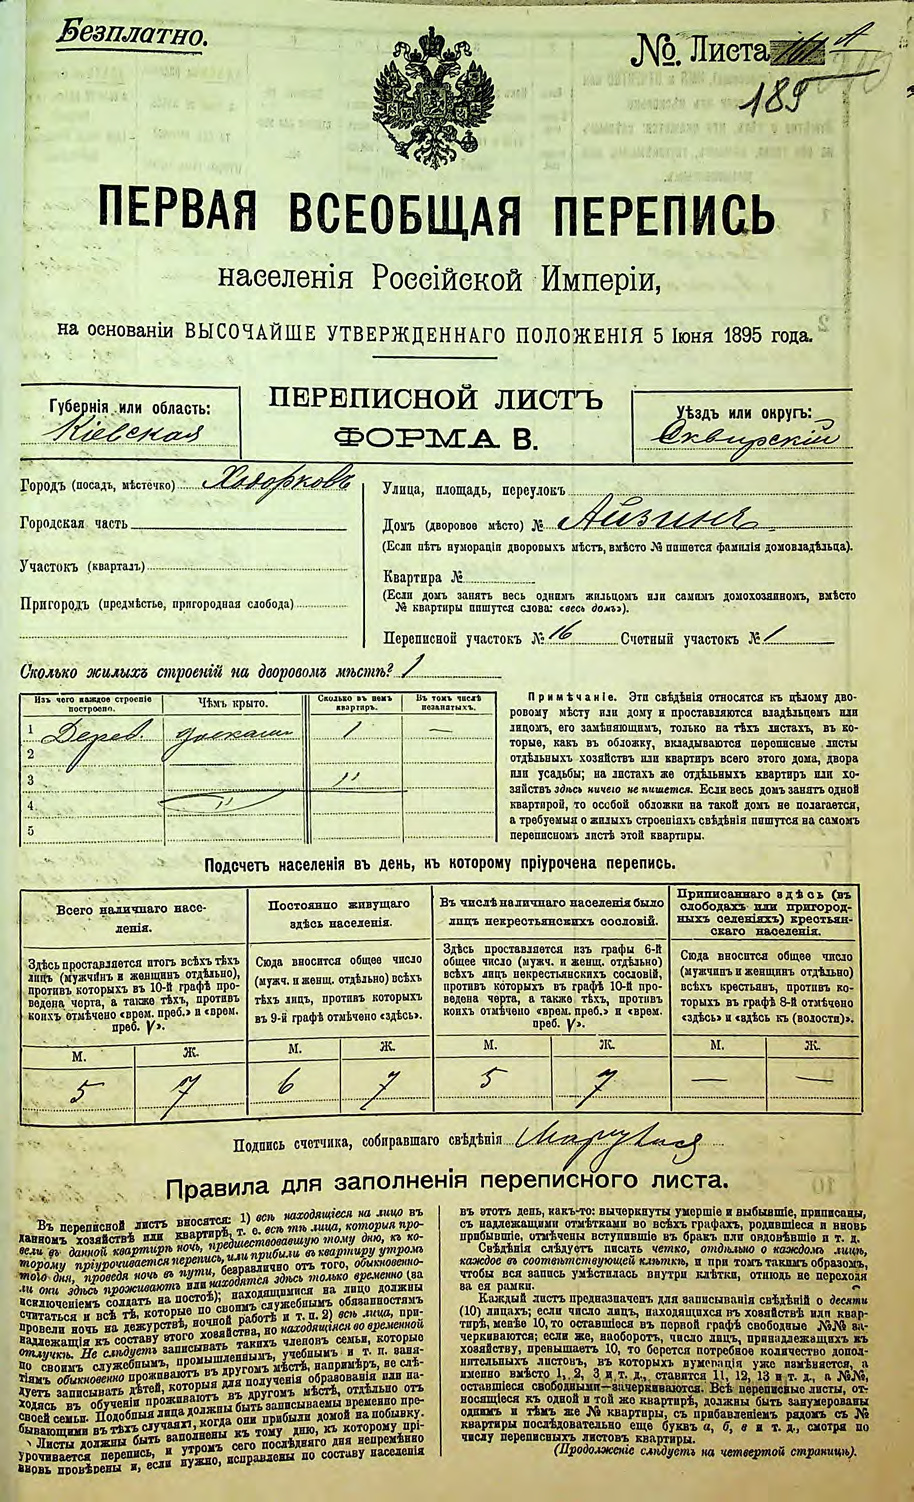 Безплатно.
№. Листа
189
ПЕРВАЯ ВСЕОБЩАЯ ПЕРЕПИСЬ
населенія Россійской Имперіи,
на основаніи ВЫСОЧАЙШЕ УТВЕРЖДЕННАГО ПОЛОЖЕНІЯ 5 Іюня 1895 года.
Губернія или область:
Кіевская
ПЕРЕПИСНОЙ ЛИСТЪ
ФОРМА В.
Уѣздъ или округъ:
Сквирскій
Городъ (посадъ, мѣстечко) Ходорковъ
Городская часть
Участокъ (кварталъ)
Пригородъ (предмѣстье, пригородная слобода)
Улица, площадь, переулокъ
Домъ (дворовое мѣсто) № Айзинъ
(Если нѣтъ нумораціи дворовыхъ мѣстъ, вмѣсто № пишется фамилія домовладѣльца).
Квартира №
(Если домъ занятъ весь однимъ жильцомъ или самимъ домохозяиномъ, вмѣсто
№ квартиры пишутся слова: «весь домъ»).
Переписной участокъ № 16 Счетный участокъ № 1
Сколько жилыхъ строеній на дворовомъ мѣстѣ? 1
Изъ чего каждое строеніе построено.
Чѣмъ крыто.
Сколько въ немъ квартиръ.
Въ томъ числѣ незанятыхъ.
1 Дерев. досками 1 —
2
3 "
4 "
5
Примѣчаніе. Эти свѣдѣнія относятся къ цѣлому дво-
ровому мѣсту или дому и проставляются владѣльцемъ или
лицомъ, его замѣняющимъ, только на тѣхъ листахъ, въ ко-
торые, какъ въ обложку, вкладываются переписные листы
отдѣльныхъ хозяйствъ или квартиръ всего этого дома, двора
или усадьбы; на листахъ же отдѣльныхъ квартиръ или хо-
зяйствъ здѣсь ничего не пишется. Если весь домъ занятъ одной
квартирой, то особой обложки на такой домъ не полагается,
а требуемыя о жилыхъ строеніяхъ свѣдѣнія пишутся на самомъ
переписномъ листѣ этой квартиры.
Подсчетъ населенія въ день, къ которому пріурочена перепись.
Всего наличнаго насе-
ленія.
Здѣсь проставляется итогъ всѣхъ тѣхъ
лицъ (мужчинъ и женщинъ отдѣльно),
противъ которыхъ въ 10-й графѣ про-
ведена черта, а также тѣхъ, противъ
коихъ отмѣчено «врем. преб.» и «врем.
преб. V».
Постоянно живущаго
здѣсь населенія.
Сюда вносится общее число
(мужч. и женщ. отдѣльно) всѣхъ
тѣхъ лицъ, противъ которыхъ
въ 9-й графѣ отмѣчено «здѣсь».
Въ числѣ наличнаго населенія было
лицъ некрестьянскихъ сословій.
Здѣсь проставляется изъ графы 6-й
общее число (мужч. и женщ. отдѣльно)
всѣхъ лицъ некрестьянскихъ сословій,
противъ которыхъ въ графѣ 10-й про-
ведена черта, а также тѣхъ, противъ
коихъ отмѣчено «врем. преб.» и «врем.
преб. V».
Приписаннаго здѣсь (въ
слободахъ или пригород-
ныхъ селеніяхъ) крестьян-
скаго населенія.
Сюда вносится общее число
(мужчинъ и женщинъ отдѣльно)
всѣхъ крестьянъ, противъ ко-
торыхъ въ графѣ 8-й отмѣчено
«здѣсь» и «здѣсь къ (волости)».
М. Ж. М. Ж. М. Ж. М. Ж.
5 7 6 7 5 7 — —
Подпись счетчика, собиравшаго свѣдѣнія
Правила для заполненія переписного листа.
Въ переписной листъ вносятся: 1) всѣ находящіеся на лицо въ
данномъ хозяйствѣ или квартирѣ, т. е. всѣ тѣ лица, которыя про-
вели въ данной квартирѣ ночь, предшествовавшую тому дню, къ ко-
торому пріурочивается перепись, или прибыли въ квартиру утромъ
того дня, проведя ночь въ пути, безразлично отъ того, обыкновенно-
ли они здѣсь проживаютъ или находятся здѣсь только временно (за
исключеніемъ солдатъ на постоѣ); находящимися на лицо должны
считаться и всѣ тѣ, которые по своимъ служебнымъ обязанностямъ
провели ночь на дежурствѣ, ночной работѣ и т. п. 2) всѣ лица, при-
надлежащія къ составу этого хозяйства, но находящіеся во временной
отлучкѣ. Не слѣдуетъ записывать такихъ членовъ семьи, которые
по своимъ служебнымъ, промышленнымъ, учебнымъ и т. п. заня-
тіямъ обыкновенно проживаютъ въ другомъ мѣстѣ, напримѣръ, не слѣ-
дуетъ записывать дѣтей, которыя для полученія образованія или на-
ходясь въ обученіи проживаютъ въ другомъ мѣстѣ, отдѣльно отъ
своей семьи. Подобныя лица должны быть записываемы временно пре-
бывающими въ тѣхъ случаяхъ, когда они прибыли домой на побывку.
Листы должны быть заполнены къ тому дню, къ которому прі-
урочивается перепись, и утромъ сего послѣдняго дня непремѣнно
вновь провѣрены и, если нужно, исправлены по составу населенія
въ этотъ день, какъ-то: вычеркнуты умершіе и выбывшіе, приписаны,
съ надлежащими отмѣтками во всѣхъ графахъ, родившіеся и вновь
прибывшіе, отмѣчены вступившіе въ бракъ или овдовѣвшіе и т. д.
Свѣдѣнія слѣдуетъ писать четко, отдѣльно о каждомъ лицѣ,
каждое въ соотвѣтствующей клѣткѣ, и при томъ такимъ образомъ,
чтобы вся запись умѣстилась внутри клѣтки, отнюдь не переходя
за ея рамки.
Каждый листъ предназначенъ для записыванія свѣдѣній о десяти
(10) лицахъ; если число лицъ, находящихся въ хозяйствѣ или квар-
тирѣ, менѣе 10, то оставшіеся въ первой графѣ свободные №№ вы-
черкиваются; если же, наоборотъ, число лицъ, принадлежащихъ къ
хозяйству, превышаетъ 10, то берется потребное количество допол-
нительныхъ листовъ, въ которыхъ нумерація уже измѣняется, а
именно вмѣсто 1, 2, 3 и т. д., ставится 11, 12, 13 и т. д., а №№,
оставшіеся свободными—зачеркиваются. Всѣ переписные листы, от-
носящіеся къ одной и той же квартирѣ, должны быть занумерованы
однимъ и тѣмъ же № квартиры, съ прибавленіемъ рядомъ съ №
квартиры послѣдовательно еще буквъ а, б, в и т. д., смотря по
числу переписныхъ листовъ квартиры.
(Продолженіе слѣдуетъ на четвертой страницѣ).